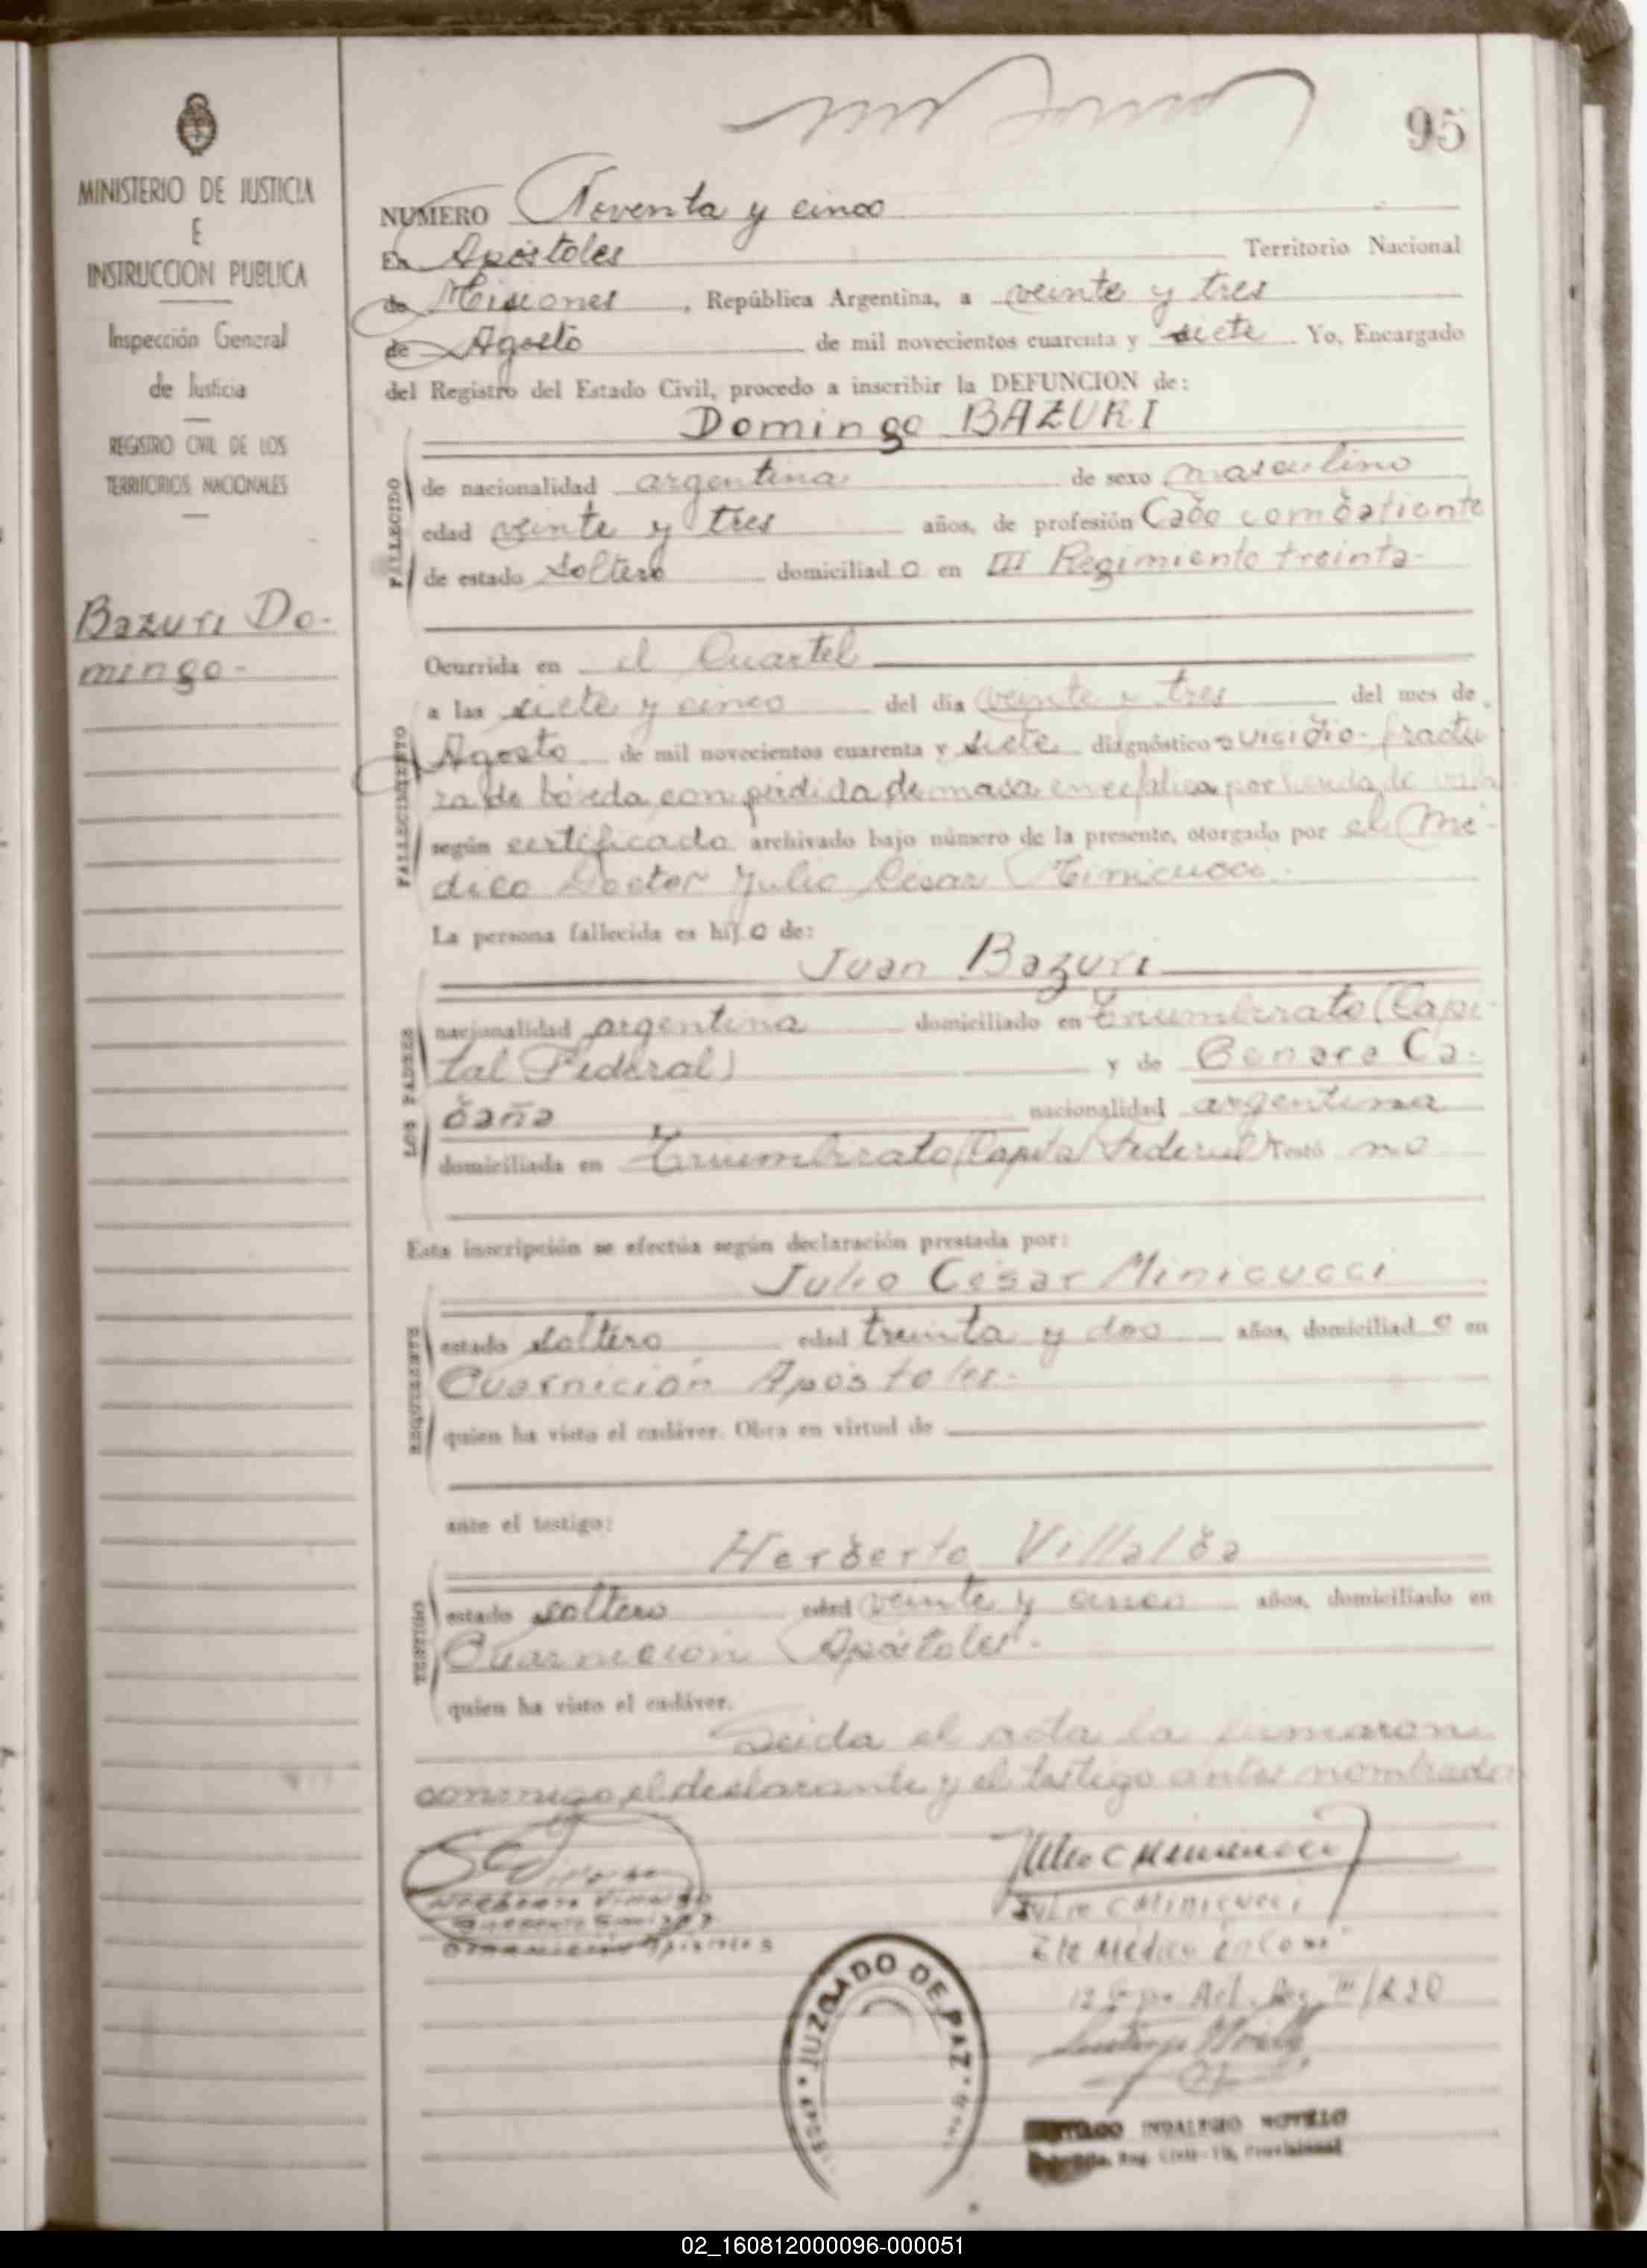 95
MINISTERIO DE JUSTICIA
E
INSTRUCCION PUBLICA
Inspección General
de Justicia
REGISTRO CIVIL DE LOS
TERRITORIOS NACIONALES
Bazuri Do-
mingo-
NUMERO Noventa y cinco
En Apóstoles Territorio Nacional
de Misiones, República Argentina, a veinte y tres
de Agosto de mil novecientos cuarenta y siete. Yo, Encargado
del Registro del Estado Civil, procedo a inscribir la DEFUNCION de:
Domingo BAZURI
FALLECIDO
de nacionalidad argentina de sexo masculino
edad veinte y tres años, de profesión Cabo combatiente
de estado soltero domiciliado en III Regimiento treinta-
FALLECIMIENTO
Ocurrida en el Cuartel
a las siete y cinco del día veinte y tres del mes de
Agosto de mil novecientos cuarenta y siete diagnóstico suicidio-fractu
ra de bóveda con pérdida de masa encefálica por herida de bala
según certificado archivado bajo número de la presente, otorgado por el Mé-
dico Doctor Julio César Minicucci.
La persona fallecida es hijo de:
Juan Bazuri
LOS PADRES
nacionalidad argentina domiciliado en (Capi-
tal Federal) y de Genara Ca-
baña nacionalidad argentina
domiciliada en (Capital Federal) Testó no
Esta inscripción se efectúa según declaración prestada por:
Julio César Minicucci
REQUIRENTE
estado soltero edad treinta y dos años, domiciliado en
Guarnición Apóstoles.
quien ha visto el cadáver. Obra en virtud de
ante el testigo:
Herberto Villalba
TESTIGO
estado soltero edad veinte y cinco años, domiciliado en
Guarnición Apóstoles.
quien ha visto el cadáver.
Leida el acta la firmaron
conmigo, el declarante y el testigo antes nombrados
Herberto Villalba
Guarnición Apóstoles
Julio C Minicucci
Julio C Minicucci
Médico
III/R30
JUZGADO DE PAZ
INDALECIO NOVILLO
Reg. Civil Provisional
02_160812000096-000051